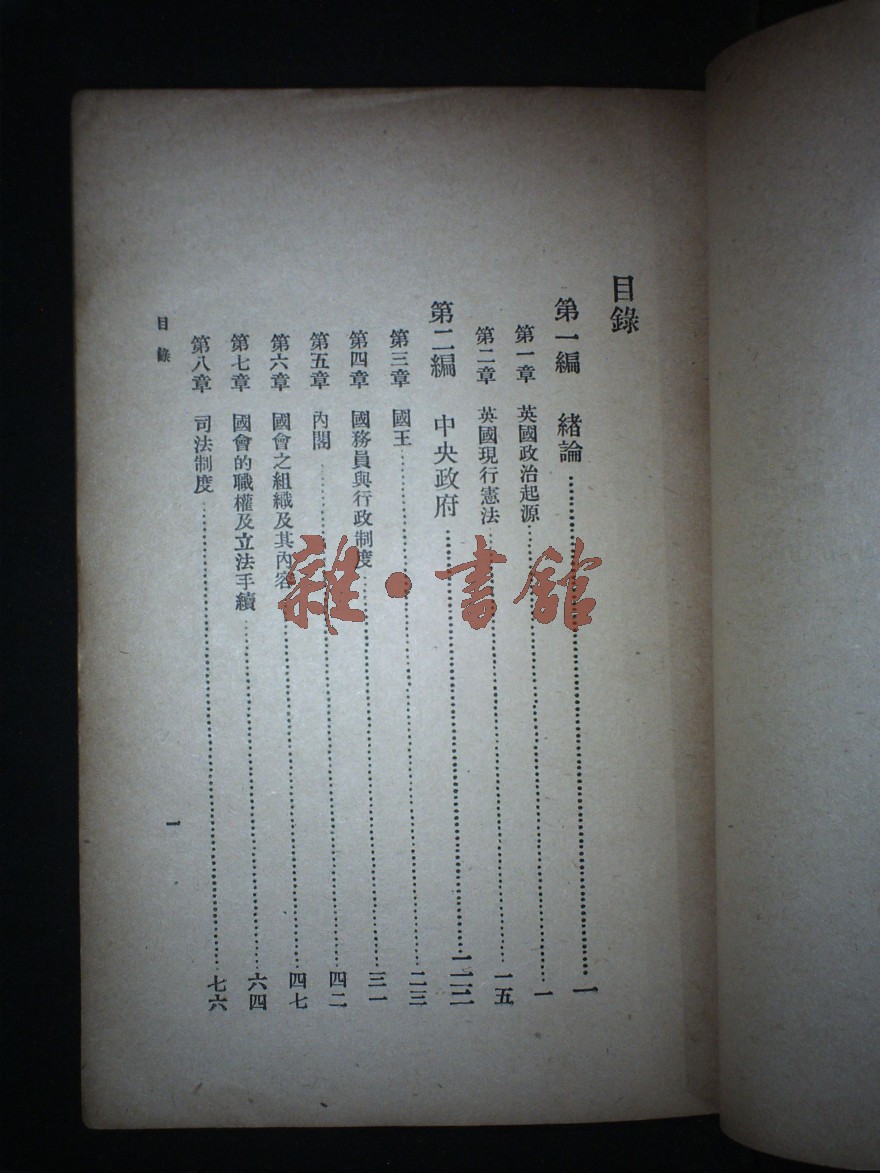 目錄
第一編　緒論……一
第一章　英國政治起源……一
第二章　英國現行憲法……一五
第二編　中央政府……二三
第三章　國王……二三
第四章　國務員與行政制度……三一
第五章　內閣……四二
第六章　國會之組織及其內容……四七
第七章　國會的職權及立法手續……六四
第八章　司法制度……七六
目錄
一
雜·書舘